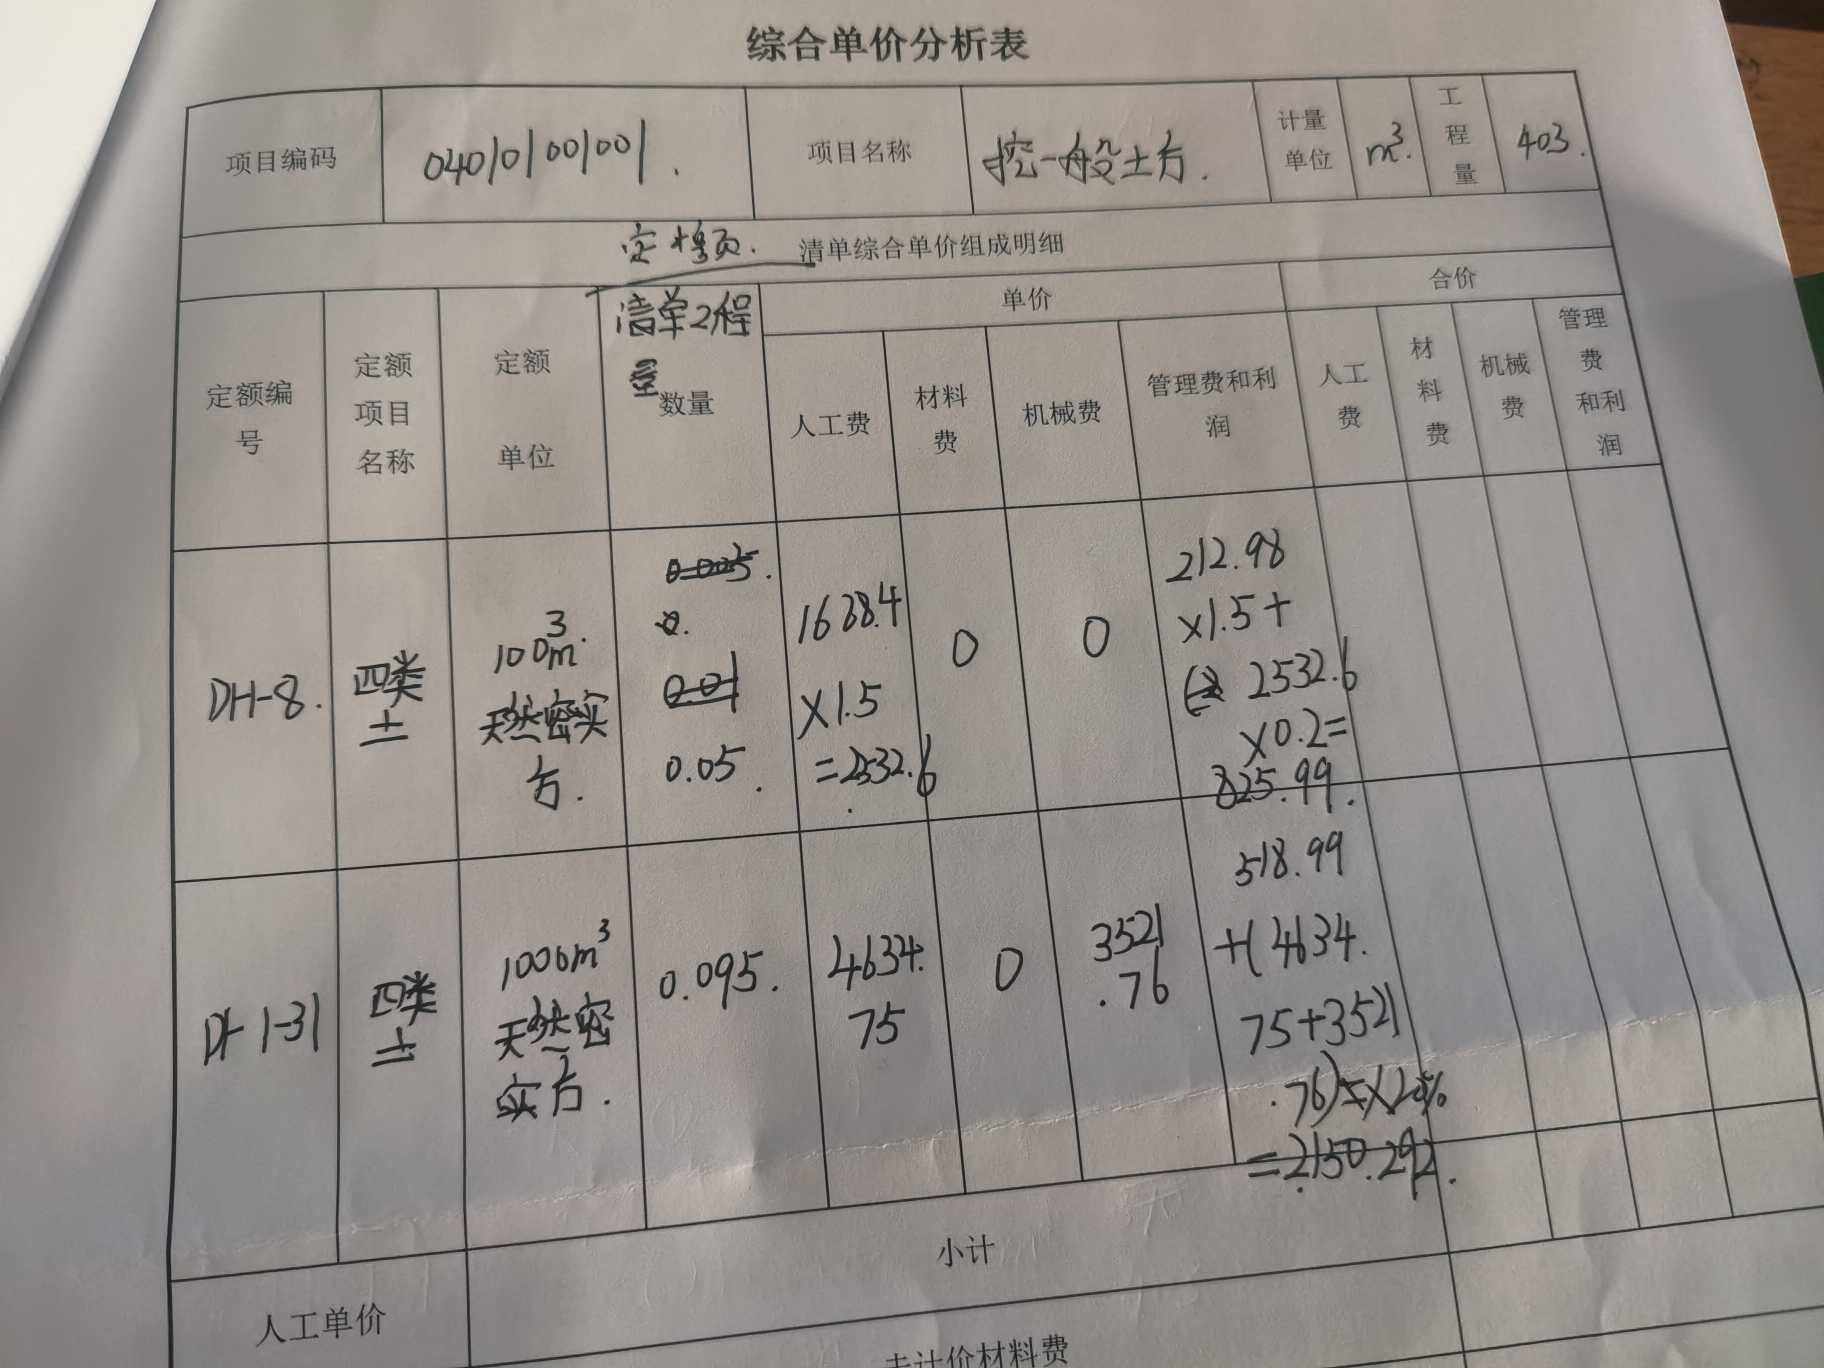 综合单价分析表
项目编码
040101001001.
项目名称
挖一般土方.
计量
单位
m³.
工
程
量
403.
清单综合单价组成明细
定额编
号
定额
项目
名称
定额
单位
清单工程
量
数量
单价
合价
人工费
材料
费
机械费
管理费和利
润
人工
费
材
料
费
机械
费
管理
费
和利
润
D1-1-8.
四类
土
100m³.
天然密实
方.
0.005.
0.
0.01
0.05.
1688.4
×1.5
=2532.6
0
0
212.98
×1.5+
2532.6
×0.2=
825.99.
D1-1-31
四类
土
1000m³
天然密
实方.
0.095.
4634.
75
0
3521
.76
518.99
+(4634.
75+3521
.76)×20%
=2150.292.
小计
人工单价
未计价材料费